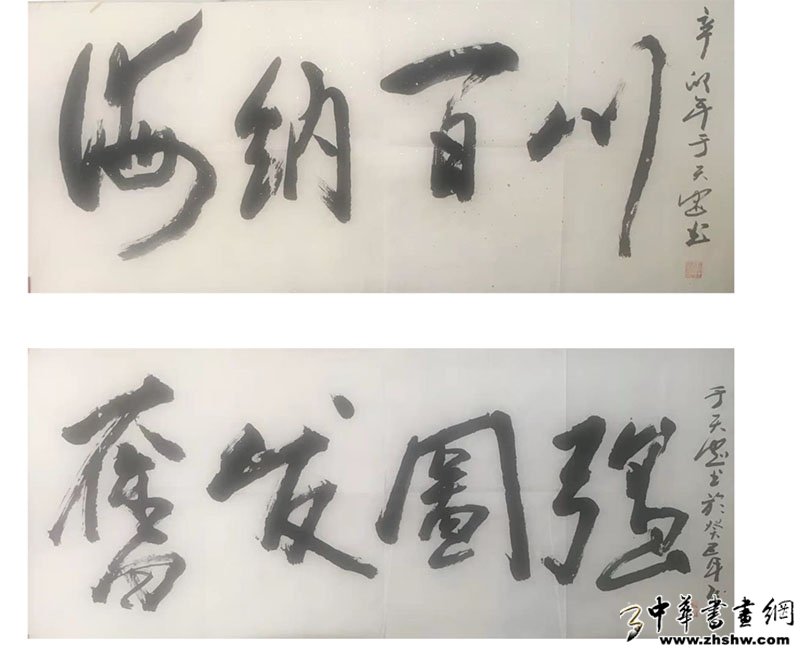 海纳百川
辛卯年于天书
奮发圖强
于天书於癸巳年
中華書畫網
www.zhshw.com